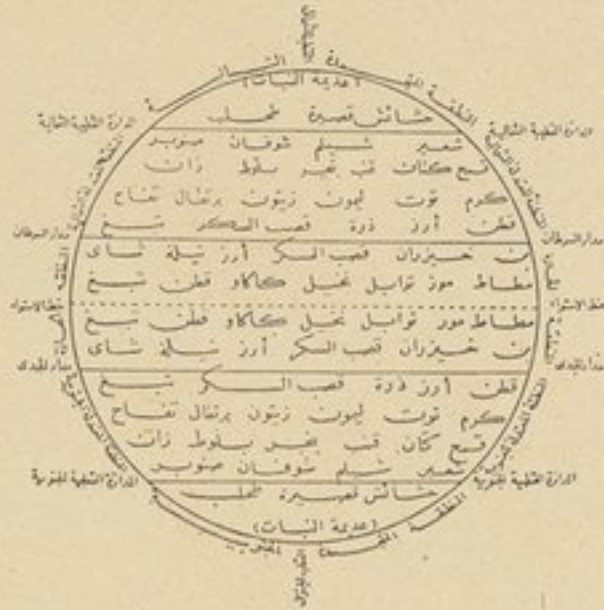 القطب الشمالي
المنطقة المتجمدة الشمالية
(عديمة النبات)
حشائش قصيرة طحلب
الدائرة القطبية الشمالية
الدائرة القطبية الشمالية
شعير شيلم شوفان صنوبر
قمح كتان قنب بنجر بلوط زان
كرم توت ليمون زيتون برتقال تفاح
قطن أرز ذرة قصب السكر تبغ
المنطقة المعتدلة الشمالية
المنطقة المعتدلة الشمالية
مدار السرطان
مدار السرطان
بن خيزران قصب السكر أرز نيلة شاى
مطاط موز توابل نخيل كاكاو قطن تبغ
المنطقة الحارة
المنطقة الحارة
خط الاستواء
خط الاستواء
مطاط موز توابل نخيل كاكاو قطن تبغ
بن خيزران قصب السكر أرز نيلة شاى
مدار الجدى
مدار الجدى
قطن أرز ذرة قصب السكر تبغ
كرم توت ليمون زيتون برتقال تفاح
قمح كتان قنب بنجر بلوط زان
شعير شيلم شوفان صنوبر
المنطقة المعتدلة الجنوبية
المنطقة المعتدلة الجنوبية
الدائرة القطبية الجنوبية
الدائرة القطبية الجنوبية
حشائش قصيرة طحلب
(عديمة النبات)
المنطقة المتجمدة الجنوبية
القطب الجنوبى